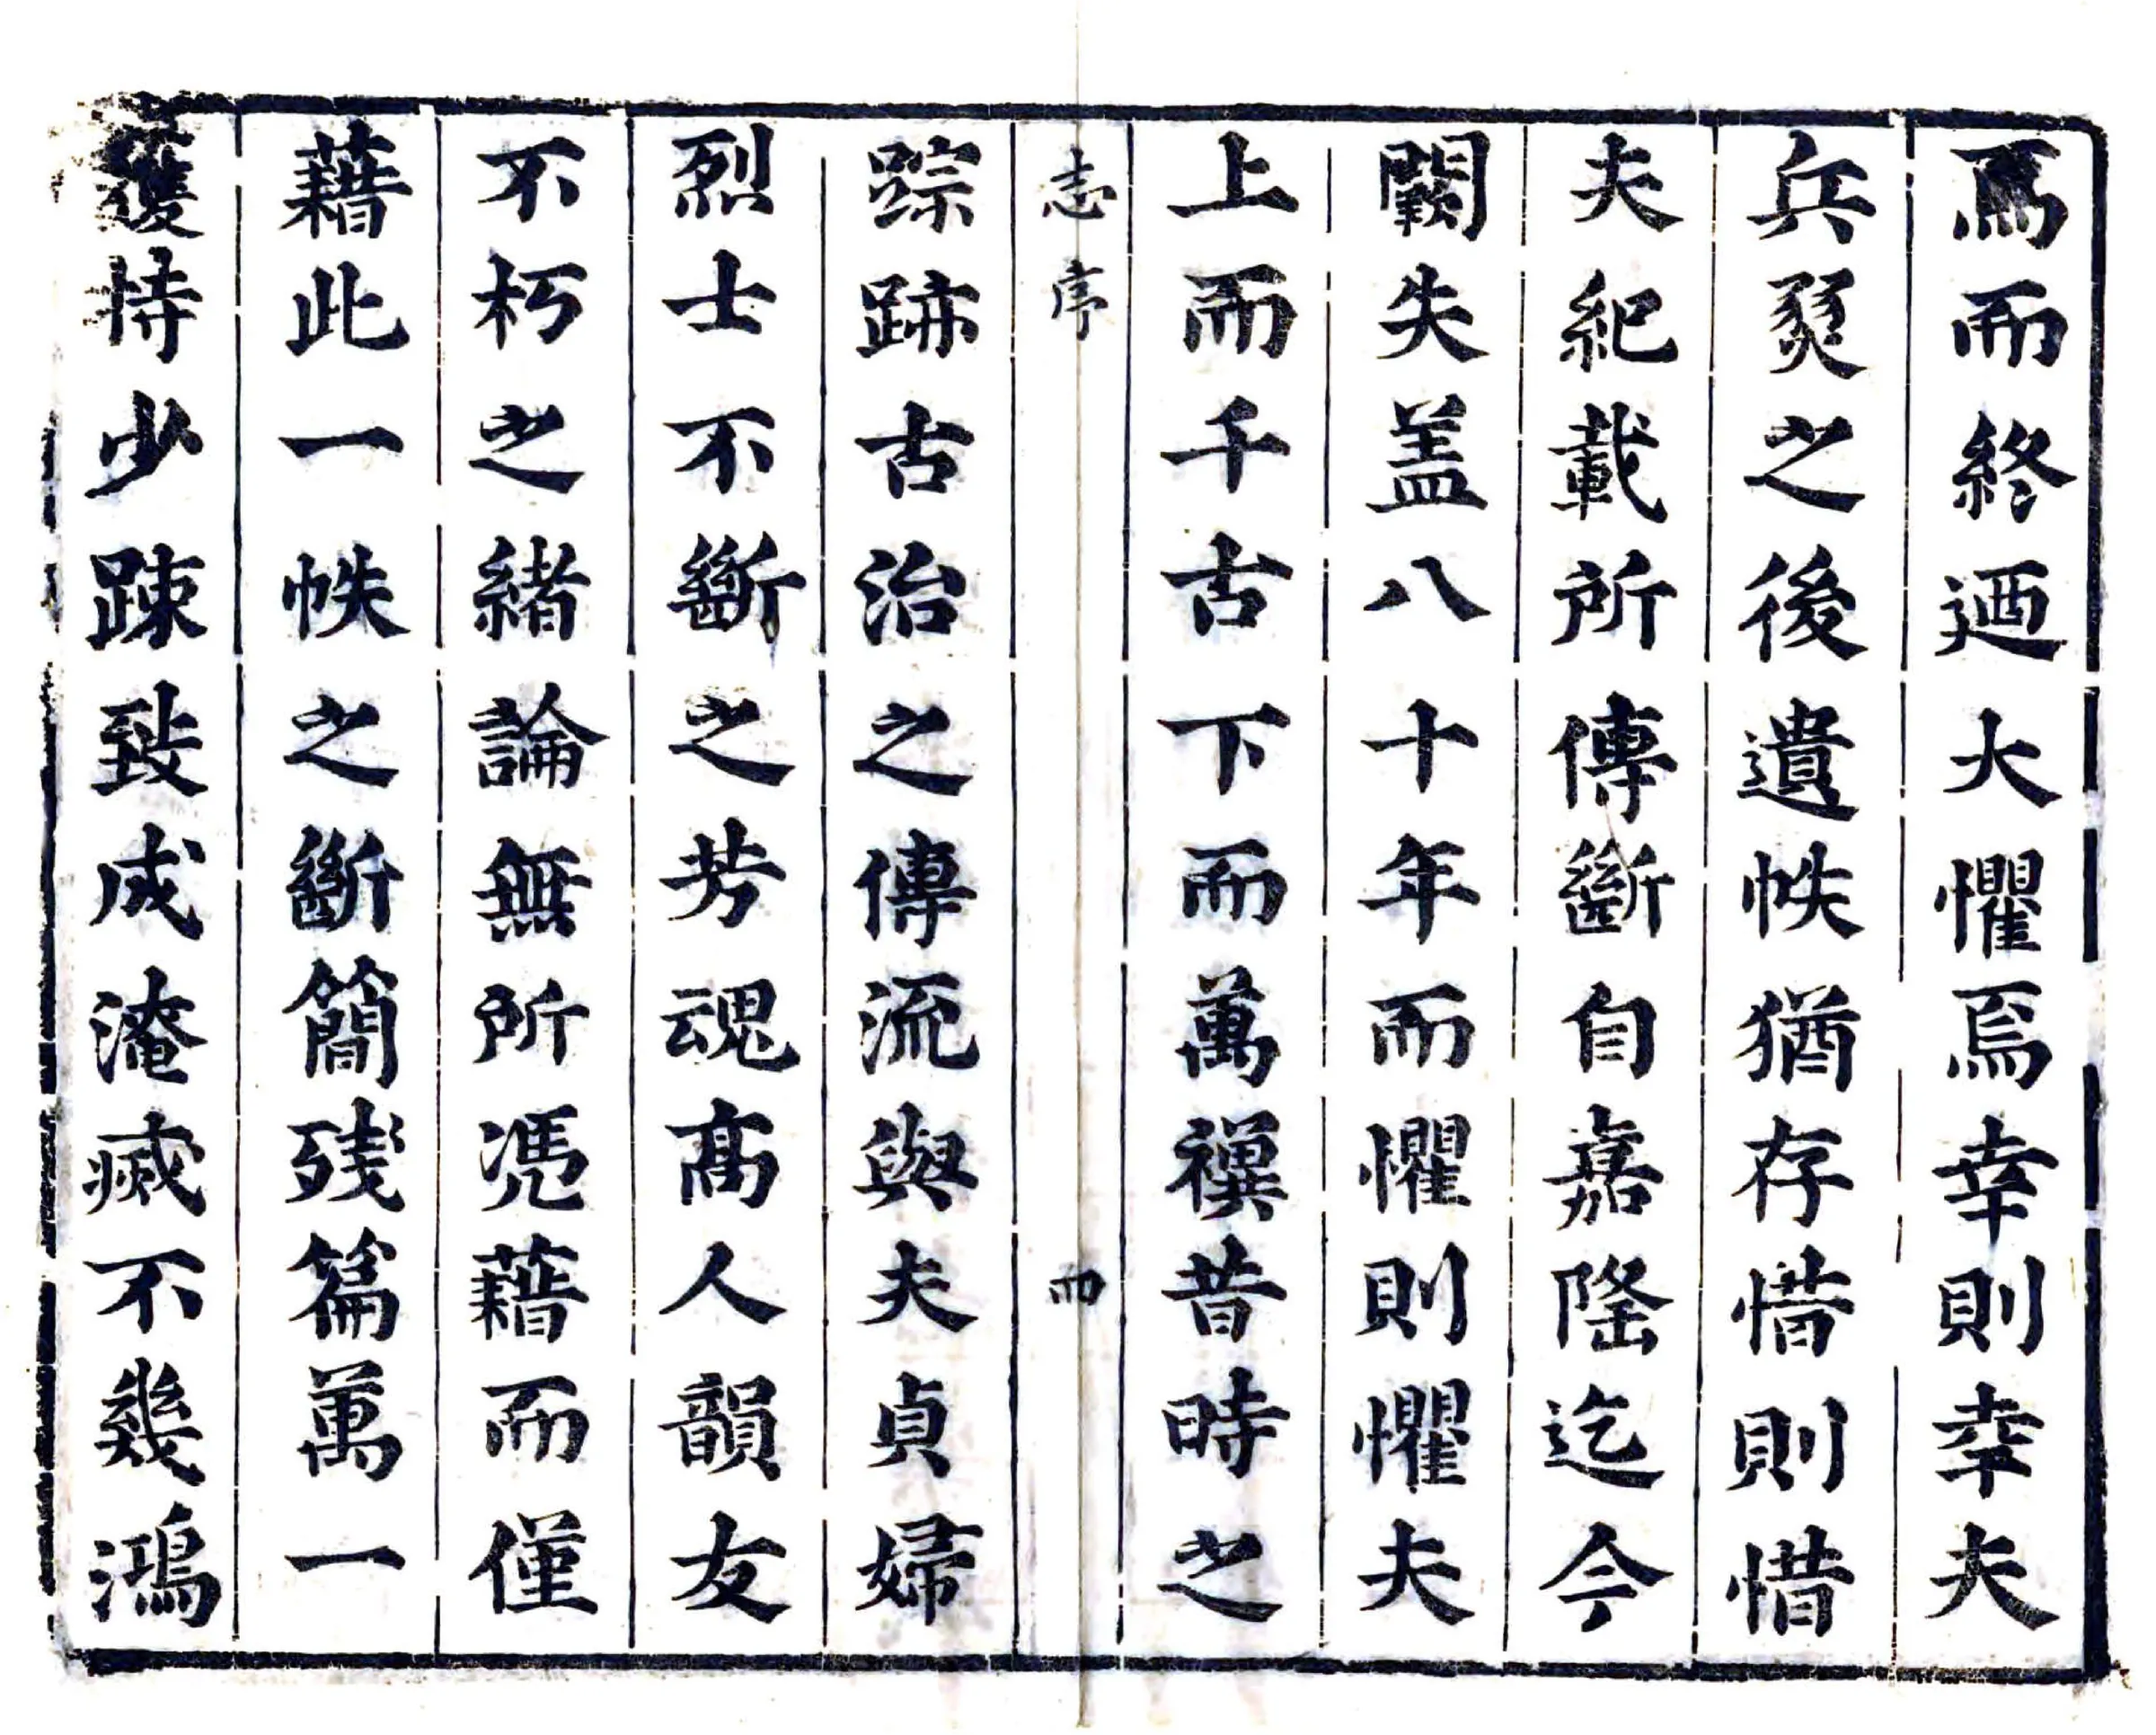 焉而終迺大懼焉幸則幸夫
兵燹之後遺帙猶存惜則惜
夫紀載所傳斷自嘉隆迄今
闕失盖八十年而懼則懼夫
上而千古下而萬禩昔時之
志序 四
踪跡古治之傳流與夫貞婦
烈士不斷之芳魂髙人韻友
不朽之緒論無所凴藉而僅
藉此一帙之斷簡残篇萬一
護持少踈致成淹滅不幾鴻